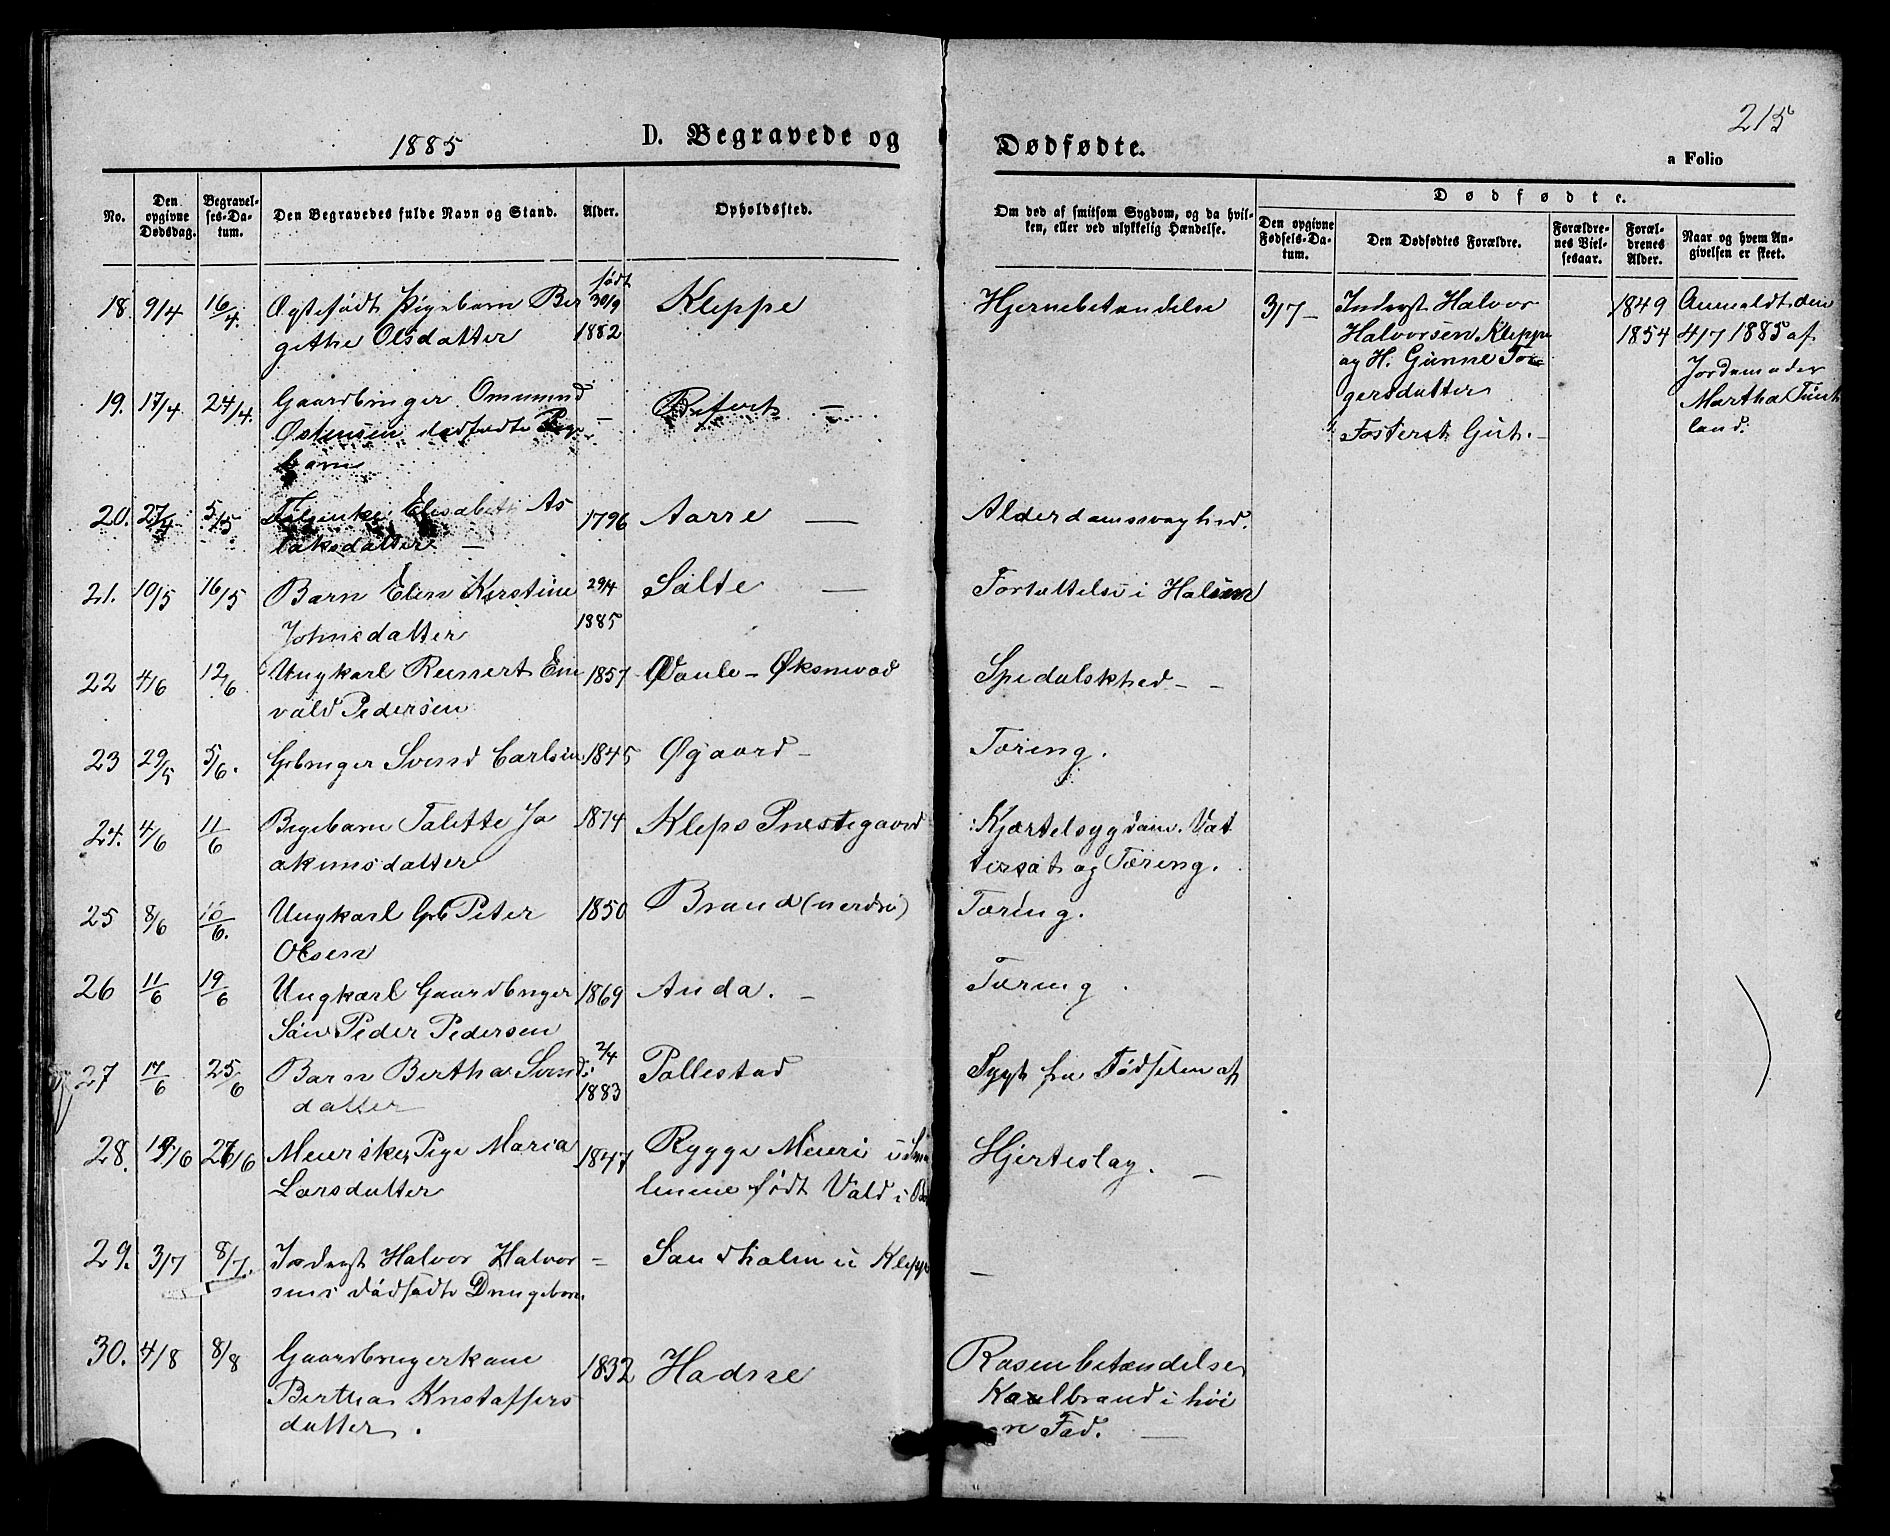 215
1885
D. Begravede og Dødfødte.
a Folio
No.
Den opgivne Dødsdag.
Begravelses-Datum.
Den Begravedes fulde Navn og Stand.
Alder.
Opholdssted.
Om død af smitsom Sygdom, og da hvilken, eller ved ulykkelig Hændelse.
Dødfødte.
Den opgivne Fødsels-Datum.
Den Dødfødtes Forældre.
Forældrenes Vielsesaar.
Forældrenes Alder.
Naar og hvem Angivelsen er skeet.
18. 9/4 16/4. Ægtefødt Pigebarn Ber født 30/9 1882 Kleppe Hjernebetændelse
gethe Olsdatter
3/7 - Inderst Halvor 1849 Anmeldt den
Halvorsen Kleppe 1854 4/7 1885 af
og H. Gunne Tor Jordemoder
gersdatter Martha
Fosterst Gut. - land.
19. 17/4 24/4. Gaardbruger Ommund -
Østensen dødfødte Pige
barn
20. 27/4 5/5. Elisabeth As 1796 Aarre — Alderdomssvaghed.
laksdatter —
21. 10/5 16/5 Barn Elen Kirstine 29/4 1885 Salte —
Johnsdatter
22 4/6 12/6 Ungkarl Reinert Ein 1857 Øxnevad Spedalskhed - -
vald Pedersen
23 29/5 5/6. Gbruger Svend Carlsen 1845 Øgaard - Tæring.
24. 4/6 11/6 Pigebarn Talette Jo 1874 Kleps Præstegaard Kjærtelsygdom. Vat
akimsdatter tersot og Tæring.
25 8/6 16/6. Ungkarl Gb Peter 1850 Braud (nerdre) Tæring.
Olsen
26 11/6 19/6 Ungkarl Gaardbruger 1869 Anda. - Tæring.
Søn Peder Pedersen
27 17/6 25/6 Barn Bertha Svends 2/4 1883 Pollestad Sygt fra Fødselen af
datter
28. 19/6 27/6 Meierske, Pige Maria 1847 Rygge Meieri i Smaa Hjerteslag. -
Larsdatter lenene født Vald i
29. 3/7 8/7. Inderst Halvor Halvor - Sandholm i Kleppe -
sens dødfødte Drengebarn.
30. 4/8 8/8 Gaardbrugerkone 1832 Hadne Rosenbetændelse
Bertha Kristoffers Koldbrand i høi
datter. re Fod. —